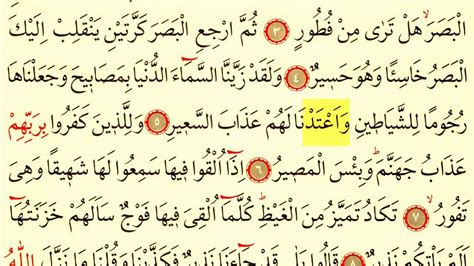 الْبَصَرَۙ هَلْ تَرٰى مِنْ فُطُورٍ ﴿٣﴾ ثُمَّ ارْجِعِ الْبَصَرَ كَرَّتَيْنِ يَنْقَلِبْ اِلَيْكَ
الْبَصَرُ خَاسِئًا وَهُوَ حَسٖيرٌ ﴿٤﴾ وَلَقَدْ زَيَّنَّا السَّمَٓاءَ الدُّنْيَا بِمَصَابٖيحَ وَجَعَلْنَاهَا
رُجُومًا لِلشَّيَاطٖينِ وَاَعْتَدْنَا لَهُمْ عَذَابَ السَّعٖيرِ ﴿٥﴾ وَلِلَّذٖينَ كَفَرُوا بِرَبِّهِمْ
عَذَابُ جَهَنَّمَؕ وَبِئْسَ الْمَصٖيرُ ﴿٦﴾ اِذَٓا اُلْقُوا فٖيهَا سَمِعُوا لَهَا شَهٖيقًا وَهِىَ
تَفُورُۙ ﴿٧﴾ تَكَادُ تَمَيَّزُ مِنَ الْغَيْظِؕ كُلَّمَٓا اُلْقِىَ فٖيهَا فَوْجٌ سَاَلَهُمْ خَزَنَتُهَٓا
اَلَمْ يَاْتِكُمْ نَذٖيرٌ ﴿٨﴾ قَالُوا بَلٰى قَدْ جَٓاءَنَا نَذٖيرٌ فَكَذَّبْنَا وَقُلْنَا مَا نَزَّلَ اللّٰهُ